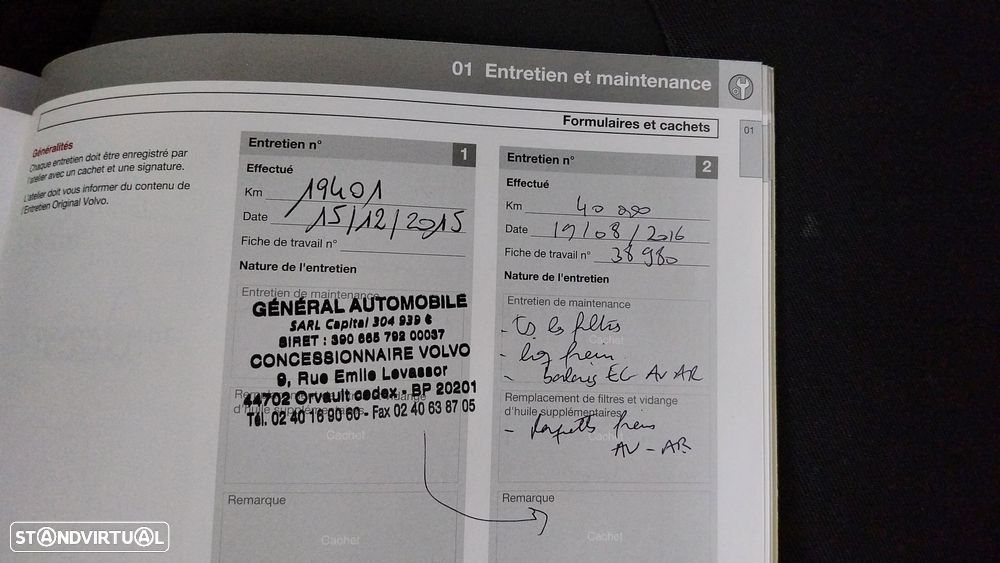 01 Entretien et maintenance
Formulaires et cachets
01
Généralités
Chaque entretien doit être enregistré par
l'atelier avec un cachet et une signature.
L'atelier doit vous informer du contenu de
l'Entretien Original Volvo.
Entretien n°
1
Effectué
Km 19401
Date 15/12/2015
Fiche de travail n°
Nature de l'entretien
Entretien de maintenance
GÉNÉRAL AUTOMOBILE
SARL Capital 304 939 €
SIRET : 390 665 792 00037
CONCESSIONNAIRE VOLVO
9, Rue Emile Levassor
44702 Orvault cedex - BP 20201
Tél. 02 40 16 90 60 - Fax 02 40 63 87 05
d'huile supplémentaires
Cachet
Remarque
Cachet
Entretien n°
2
Effectué
Km 40 000
Date 19/08/2016
Fiche de travail n° 38980
Nature de l'entretien
Entretien de maintenance
- Ts les filtres
Cachet
- liq frein
- balais EG AV AR
Remplacement de filtres et vidange
d'huile supplémentaires
- plaquettes freins
Cachet
AV - AR
Remarque
Cachet
STANDVIRTUAL